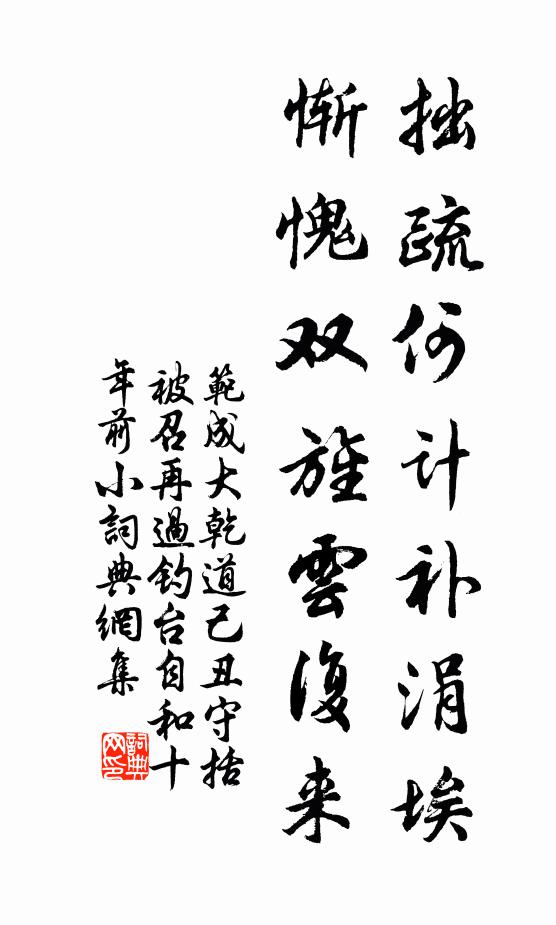 拙疏何计补涓埃
惭愧双旌雲復来
範成大乾道己丑守括
被召再過钓台自和十
年前小詞典網集
詞典
网印